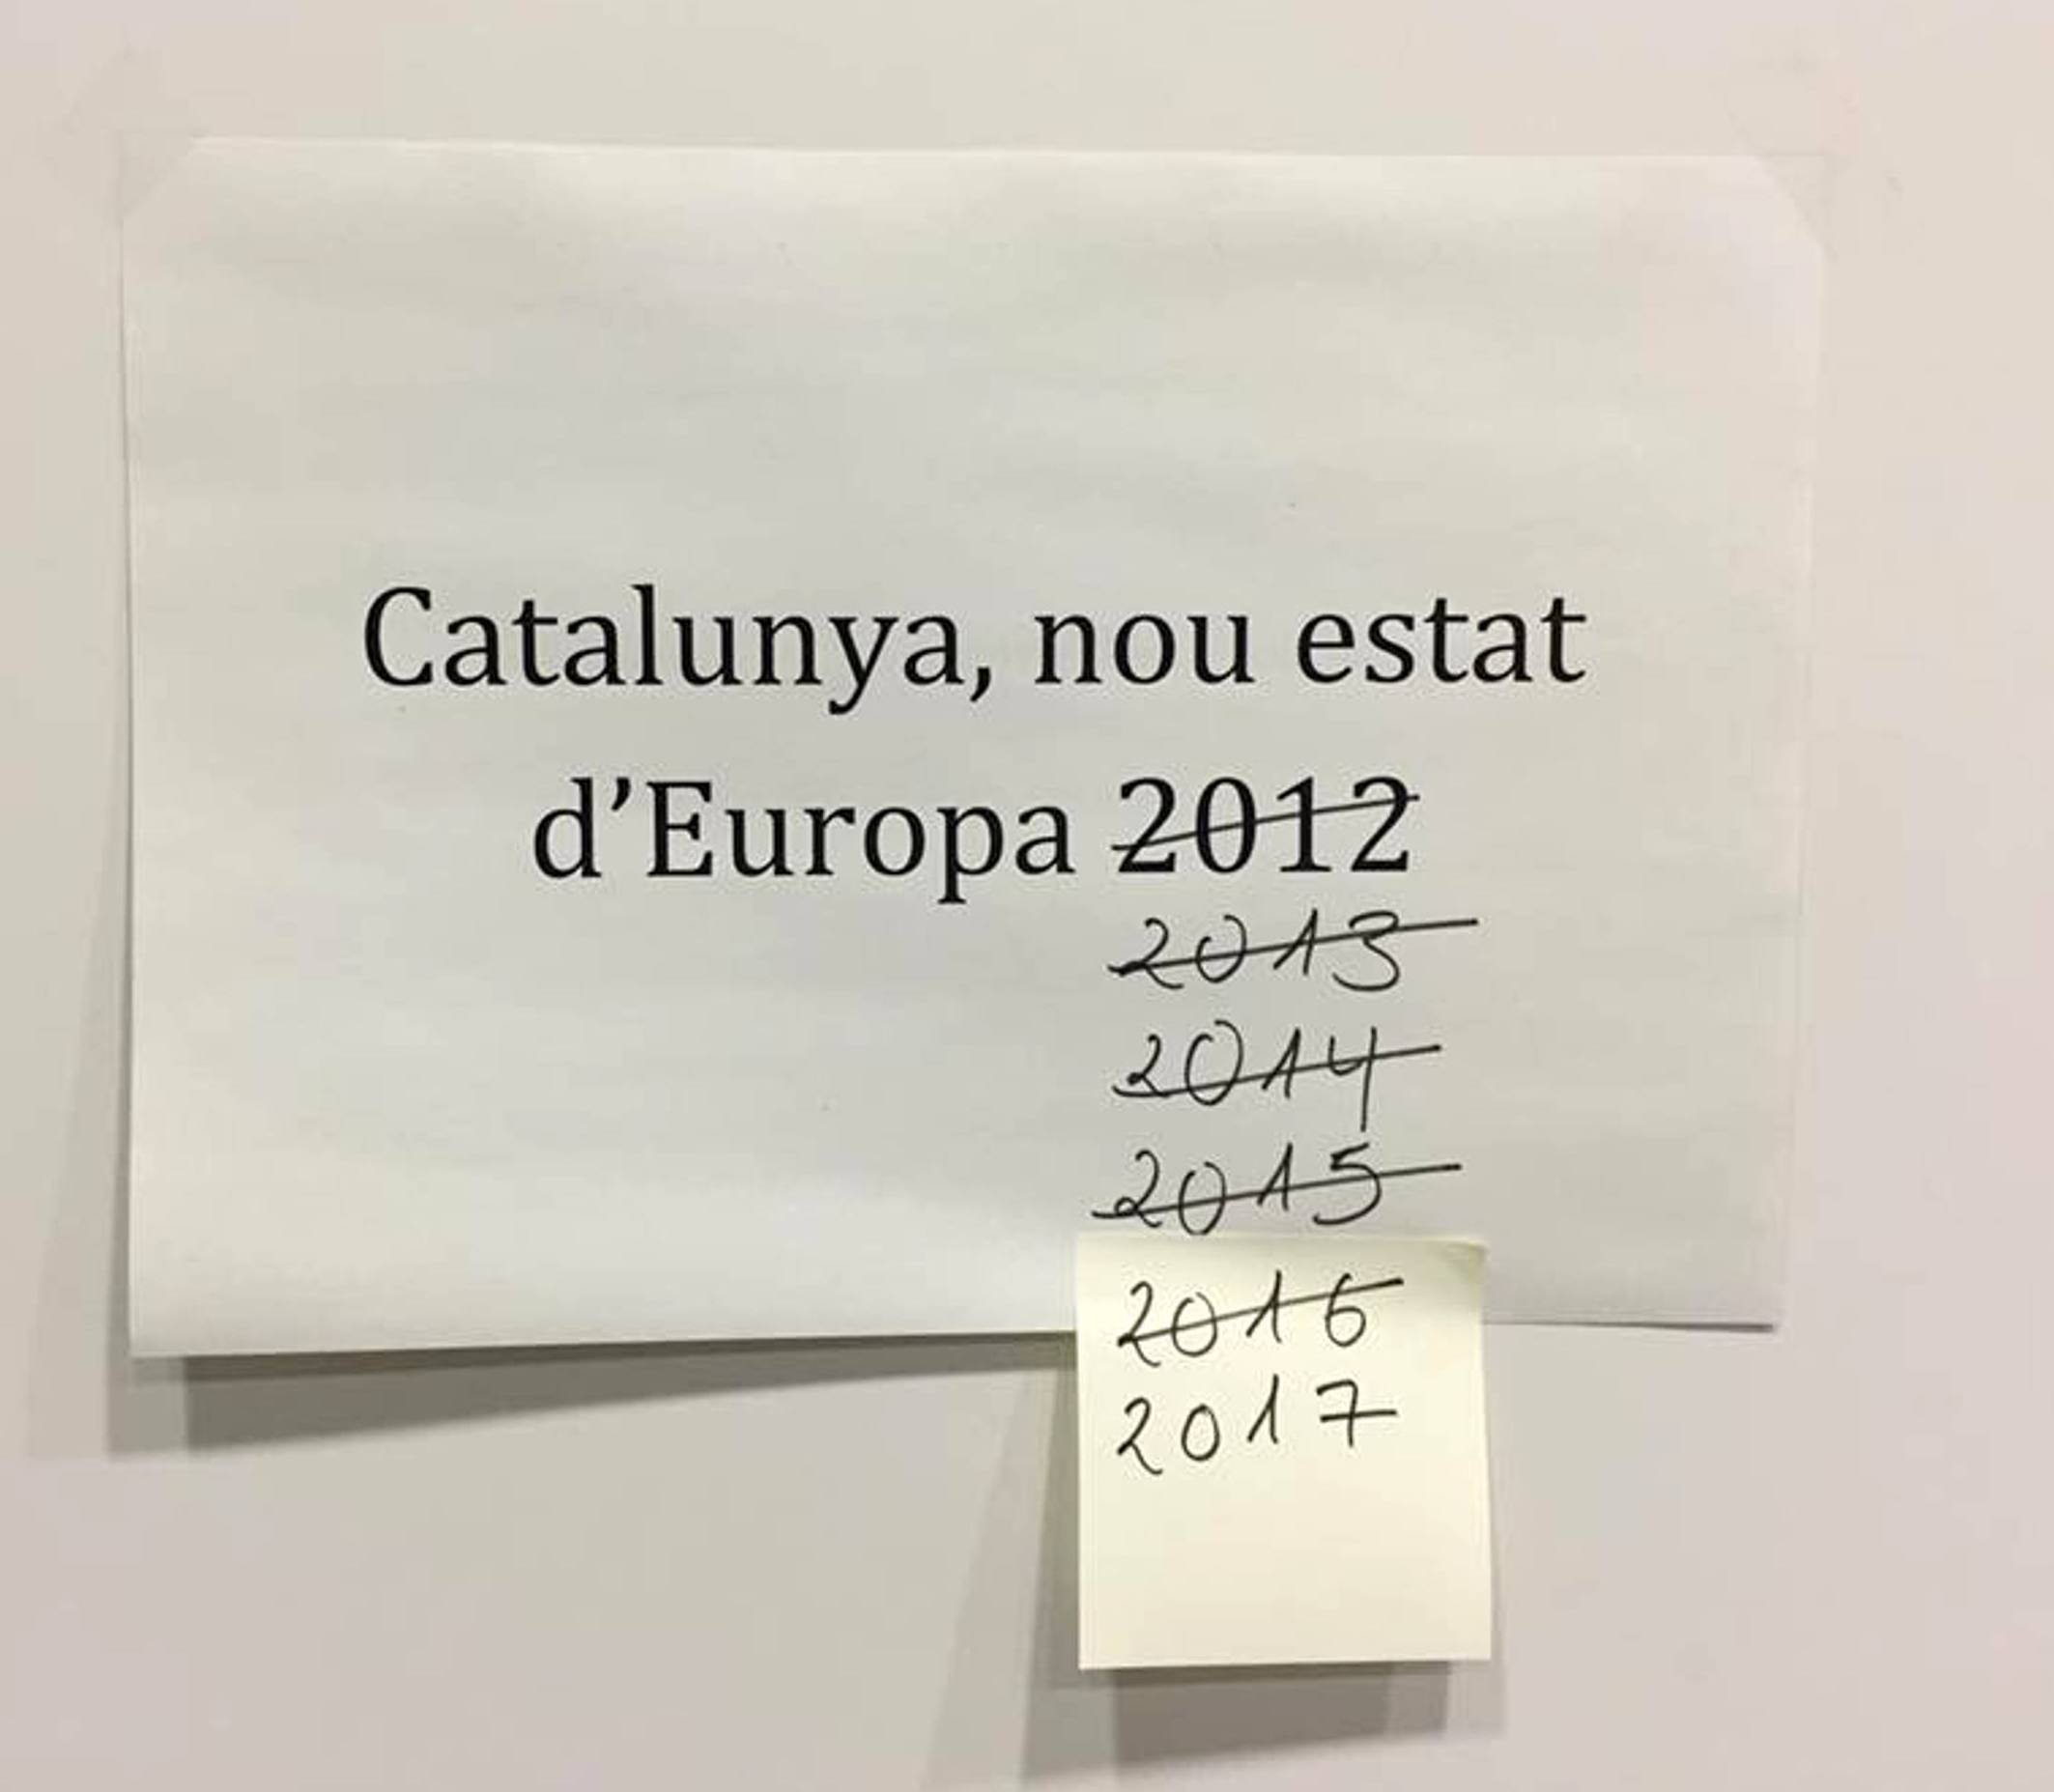 Catalunya, nou estat
d’Europa 2012
2013
2014
2015
2016
2017